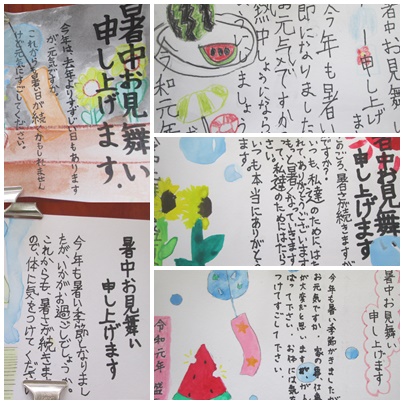 暑中お見舞い
申し上げます。
今年は、去年よりすずしい日もあります
が、元気ですか。
これからも暑い日が続くかもしれません
けど元気にすごしてください。
暑中お見舞い
申し上げます
今年も暑い季節になりまし
たが、いかがお過ごしでしょうか。
これからも、暑さが続きます
ので、体に気をつけてくださ
暑中お見舞
申し上げま
今年も暑い
節になりました
お元気ですか
熱中
令和元年
暑中お見舞
申し上げます
暑さが続きますが
ですか?
いつも、私達のためには
れてありがとうございます
も、と暑くなっていきます
私達のためにはたら
いつも本当にありがとう
ます。
暑中お見舞い
申し上げます
今年も暑い季節がきましたが
お元気ですか。
が大変だと思いますが、がん
ばって下さい。お体には気を
つけてすごして下さい。
令和元年 盛